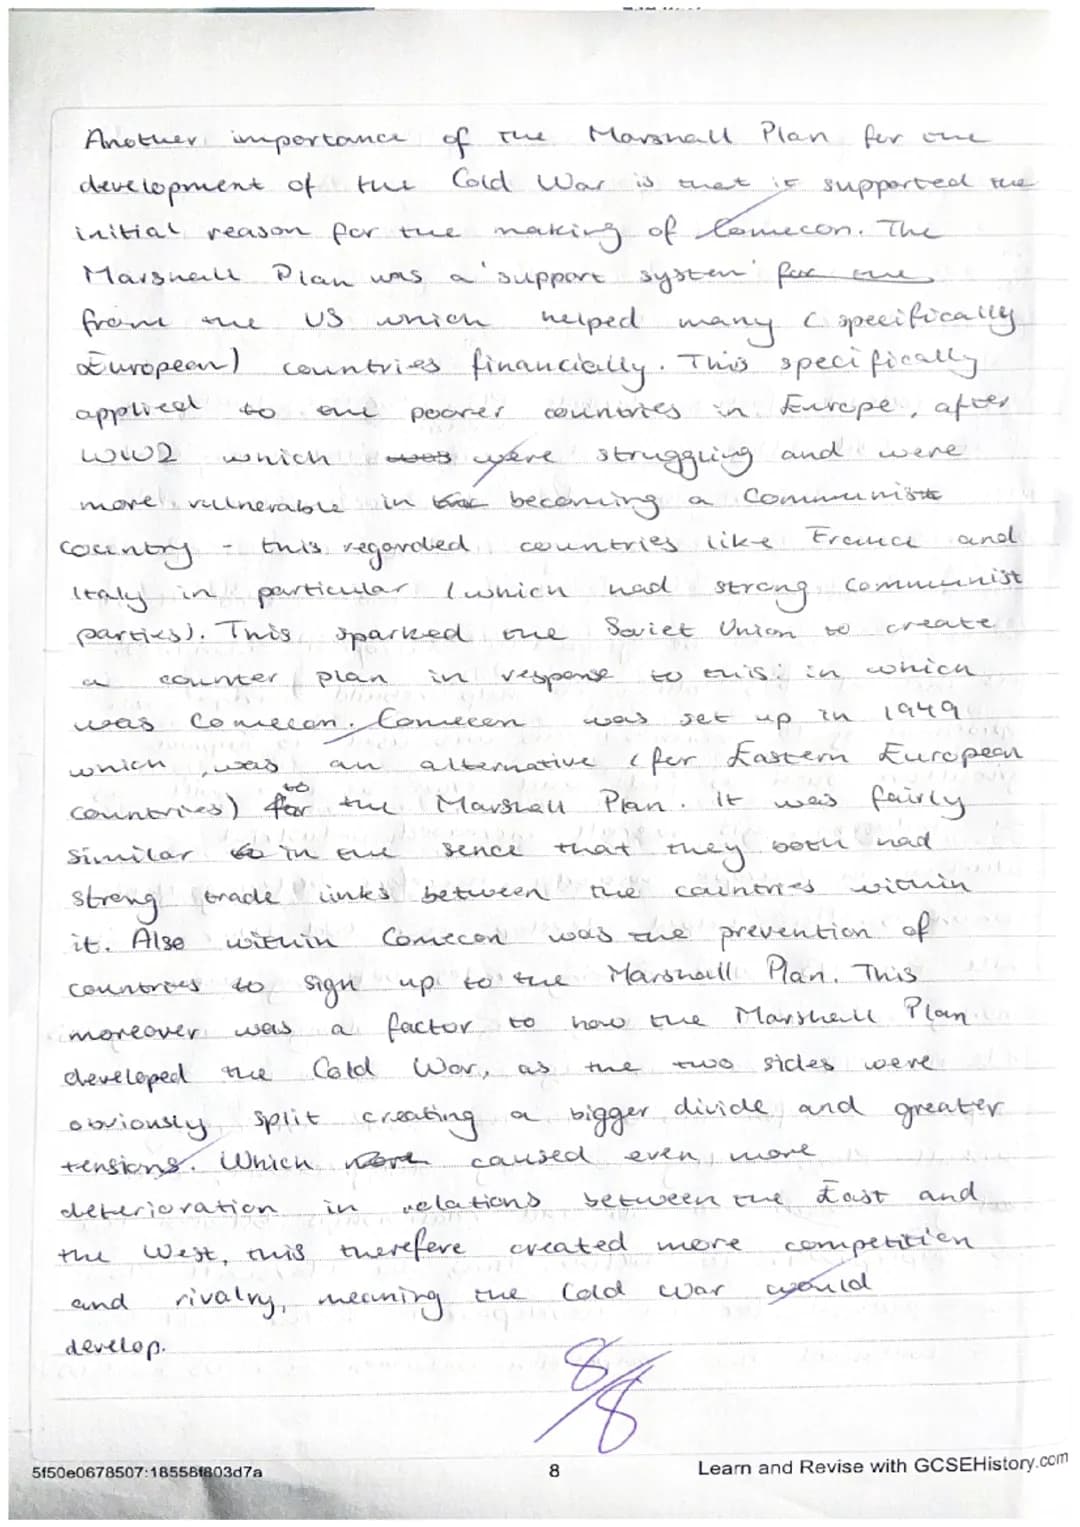 Another importance of the Marshall Plan for the
development of the Cold War is that it supported the
initial reason for the making of Comecon. The
Marshall Plan was a 'support system' for the
from the US which helped many (specifically
European) countries financially. This specifically
applied to the poorer countries in Europe, after
WW2 which was were struggling and were
more vulnerable in becoming a Communist
country - this regarded countries like France and
Italy in particular (which had strong communist
parties). This sparked the Soviet Union to create
a counter plan in response to this: in which
was Comecon. Comecon was set up in 1949
which was an alternative (for Eastern European
countries) for to the Marshall Plan. It was fairly
similar to in the sence that they both had
strong trade links between the countries within
it. Also within Comecon was the prevention of
countries to sign up to the Marshall Plan. This
moreover was a factor to how the Marshall Plan
developed the Cold War, as the two sides were
obviously split creating a bigger divide and greater
tensions. Which more caused even more
deterioration in relations between the East and
the West, this therefore created more competition
and rivalry, meaning the Cold War would
develop.
8/8
5f50e0678507:18558f803d7a
8
Learn and Revise with GCSEHistory.com